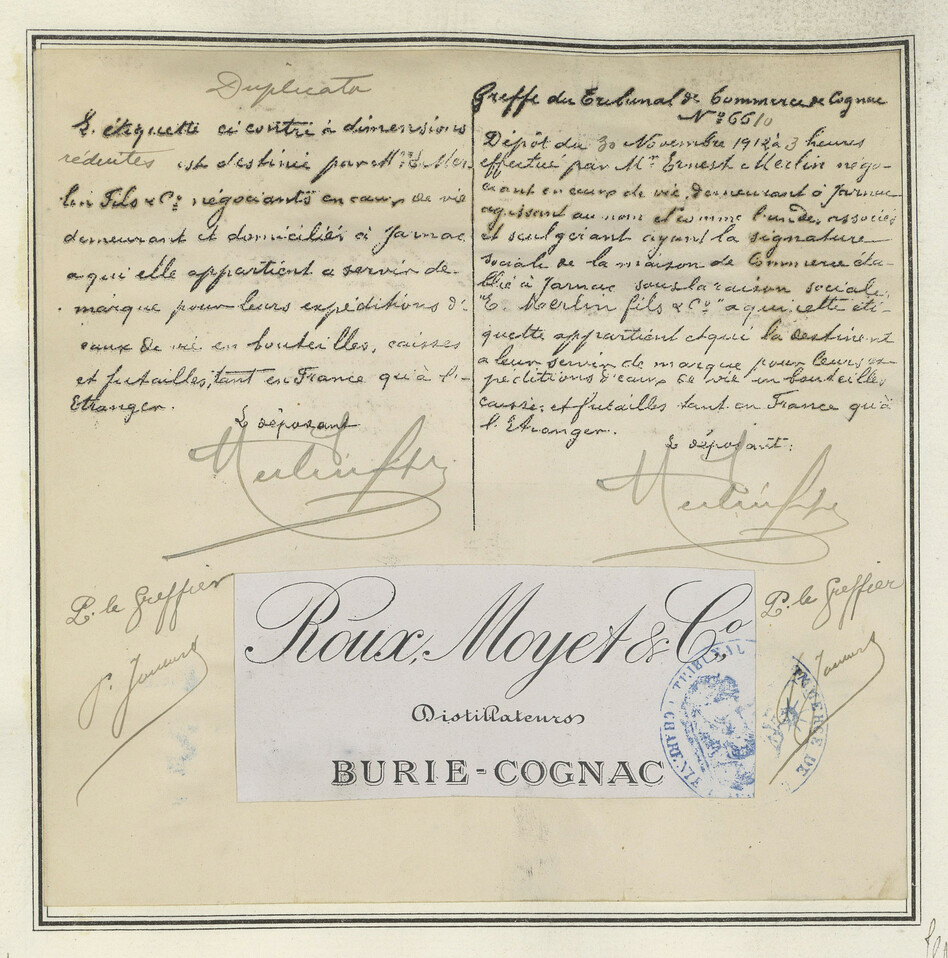 Duplicata
L'étiquette ci contre à dimensions
réduites est destinée par Mrs E. Mer-
lin Fils & Cie négociants en eaux de vie
demeurant et domiciliés à Jarnac
a qui elle appartient a servir de
marque pour leurs expéditions d'
eaux de vie en bouteilles, caisses
et futailles, tant en France qu'à l'
Etranger.
Le déposant
Merlin fils
Greffe du Tribunal de Commerce de Cognac
No 6610
Dépôt du 30 Novembre 1912 à 3 heures
effectué par Mr Ernest Merlin négo-
ciant en eaux de vie, demeurant à Jarnac
agissant au nom et comme l'un des associés
et seul gérant ayant la signature
sociale de la maison de Commerce éta-
blie à Jarnac sous la raison sociale
"E. Merlin fils & Co" a qui cette éti-
quette appartient et qui la destinent
a leur servir de marque pour leurs ex-
péditions d'eaux de vie en bouteilles
caisses et futailles tant en France qu'à
l'Etranger.
Le déposant:
Merlin fils
P. le Greffier
P. le Greffier
Roux, Moyet & Co
Distillateurs
BURIE-COGNAC
TRIBUNAL
CHARENTE